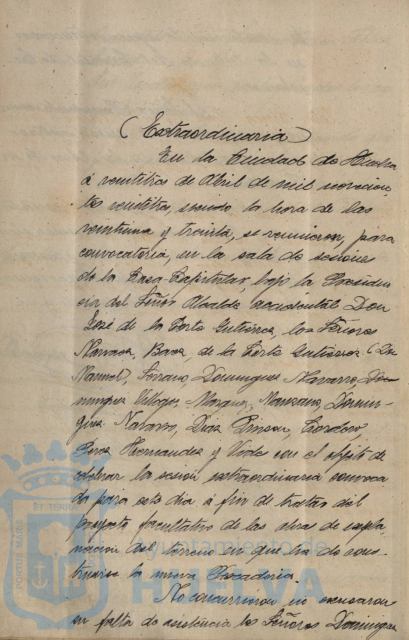 (Extraordinaria)
En la Ciudad de Huelva
á veintitres de Abril de mil novecien
tos veintitres, siendo la hora de las
veintiuna y treinta, se reunieron, para
convocatoria, en la sala de sesiones
de la Casa Capitular, bajo la Presiden
cia del Señor Alcalde accidental Don
José de la Corte Gutiérrez, los Señores
Narvaez, de la Corte Gutierrez (Dn
Manuel), Serrano, Dominguez Navarro, Do
minguez Villegas, Marquez, Manzano, Domin
guez Navarro, Diaz Pinzon, Cordero
Perez Hernandez y con el objeto de
celebrar la sesión extraordinaria convoca
da para este dia á fin de tratar del
proyecto facultativo de las obras de expla
nacion del terreno en que ha de cons
truirse la nueva Pescaderia.
No concurrieron ni excusaron
su falta de asistencia los Señores Dominguez
PORTUM MARIS ET TERRÆ
Ayuntamiento de
HUELVA